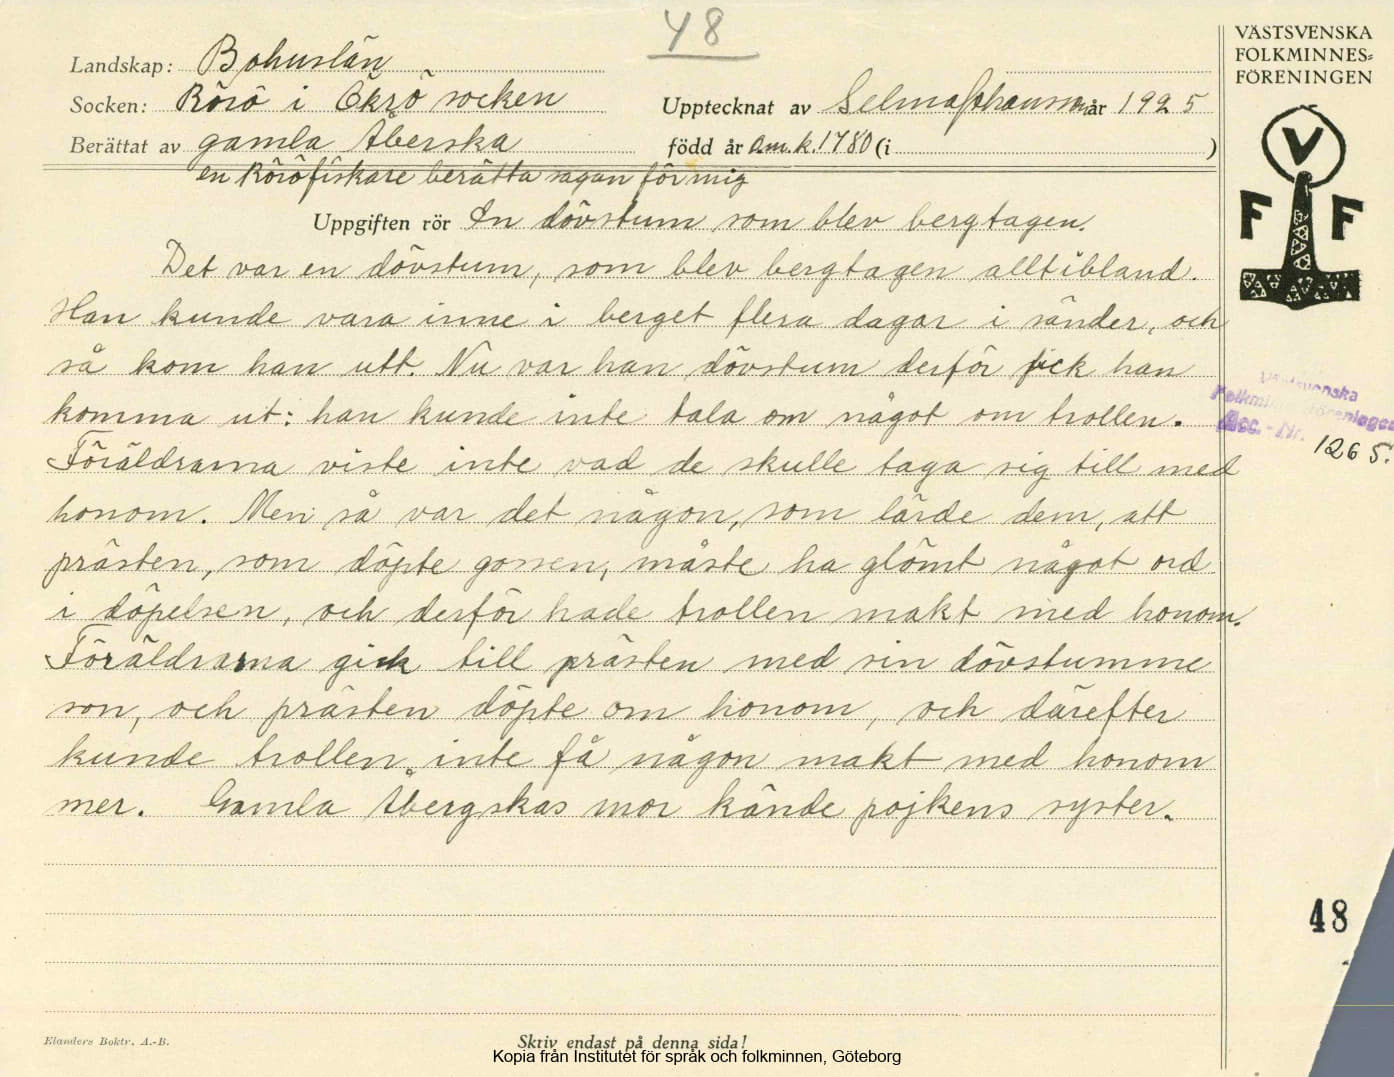 48
Landskap: Bohuslän
Socken: Rörö i Öckrö socken
Berättat av gamla Åberska
en Röröfiskare berätta sagan för mig
Upptecknat av Selma Johansson år 1925
född år o.m.k. 1780 (i )
VÄSTSVENSKA
FOLKMINNES=
FÖRENINGEN
V
F F
Uppgiften rör En dövstum som blev bergtagen.
Det var en dövstum, som blev bergtagen alltibland.
Han kunde vara inne i berget flera dagar i sänder, och
så kom han utt. Nu var han dövstum derför fick han
komma ut: han kunde inte tala om något om trollen.
Föräldrarna viste inte vad de skulle taga sig till med
honom. Men så var det någon, som lärde dem, att
prästen, som döpte gossen, måste ha glömt något ord
i döpelsen, och derför hade trollen makt med honom.
Föräldrarna gick till prästen med sin dövstumme
son, och prästen döpte om honom, och därefter
kunde trollen inte få någon makt med honom
mer. Gamla Åbergskas mor kände pojkens syster.
Västsvenska
Folkminnesföreningen
Acc.-Nr. 1265.
48
Elanders Boktr. A.-B.
Skriv endast på denna sida!
Kopia från Institutet för språk och folkminnen, Göteborg